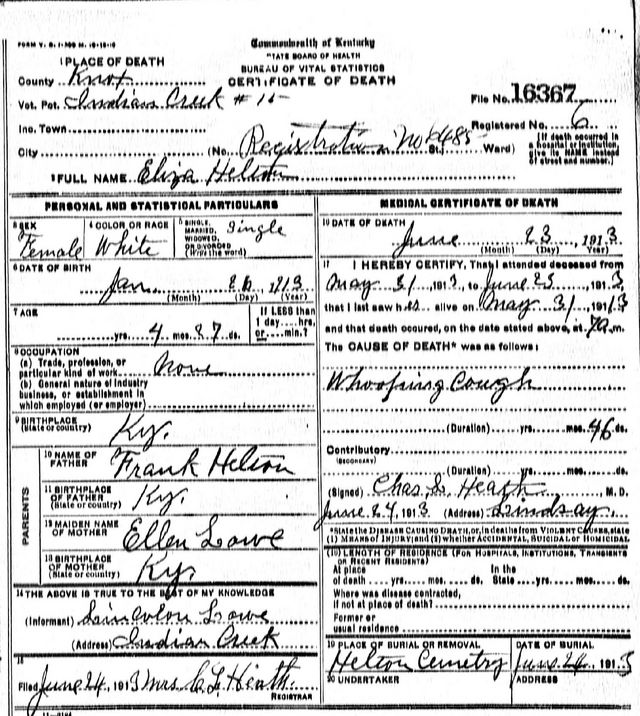 FORM V. S. 1-
Commonwealth of Kentucky
STATE BOARD OF HEALTH
BUREAU OF VITAL STATISTICS
CERTIFICATE OF DEATH
1 PLACE OF DEATH
County Knox
Vot. Pct. Indian Creek # 15
File No. 16367
Inc. Town
Registered No. 6
City (No. Registration No 6485 St. Ward)
[If death occurred in a hospital or institution, give its NAME instead of street and number.]
2 FULL NAME Eliza Helton
PERSONAL AND STATISTICAL PARTICULARS
3 SEX Female
4 COLOR OR RACE White
5 SINGLE, MARRIED, WIDOWED, OR DIVORCED (Write the word) Single
6 DATE OF BIRTH
Jan 26 1913
(Month) (Day) (Year)
7 AGE
yrs. 4 mos. 27 ds.
If LESS than 1 day....hrs. or....min.?
8 OCCUPATION
(a) Trade, profession, or particular kind of work None
(b) General nature of industry business, or establishment in which employed (or employer)
9 BIRTHPLACE (State or country) Ky.
PARENTS
10 NAME OF FATHER Frank Helton
11 BIRTHPLACE OF FATHER (State or country) Ky.
12 MAIDEN NAME OF MOTHER Ellen Lowe
13 BIRTHPLACE OF MOTHER (State or country) Ky.
14 THE ABOVE IS TRUE TO THE BEST OF MY KNOWLEDGE
(Informant) Lincolon Lowe
(Address) Indian Creek
15
Filed June 24, 1913 Mrs C L Heath
REGISTRAR
MEDICAL CERTIFICATE OF DEATH
16 DATE OF DEATH
June 23, 1913
(Month) (Day) (Year)
17 I HEREBY CERTIFY, That I attended deceased from
May 31, 1913, to June 23, 1913,
that I last saw her alive on May 31, 1913
and that death occured, on the date stated above, at 7a m.
The CAUSE OF DEATH* was as follows:
Whooping Cough
(Duration) yrs. mos. 46 ds.
Contributory
(SECONDARY)
(Duration) yrs. mos. ds.
(Signed) Chas L. Heath, M. D.
June 24, 1913 (Address) Lindsay.
*State the DISEASE CAUSING DEATH, or, in deaths from VIOLENT CAUSES, state
(1) MEANS OF INJURY; and (2) whether ACCIDENTAL, SUICIDAL or HOMICIDAL
18 LENGTH OF RESIDENCE (FOR HOSPITALS, INSTITUTIONS, TRANSIENTS
OR RECENT RESIDENTS)
At place of death yrs. mos. ds.
In the State yrs. mos. ds.
Where was disease contracted,
if not at place of death?
Former or
usual residence
19 PLACE OF BURIAL OR REMOVAL
Helton Cemetry
DATE OF BURIAL
June 24, 1913
20 UNDERTAKER
ADDRESS